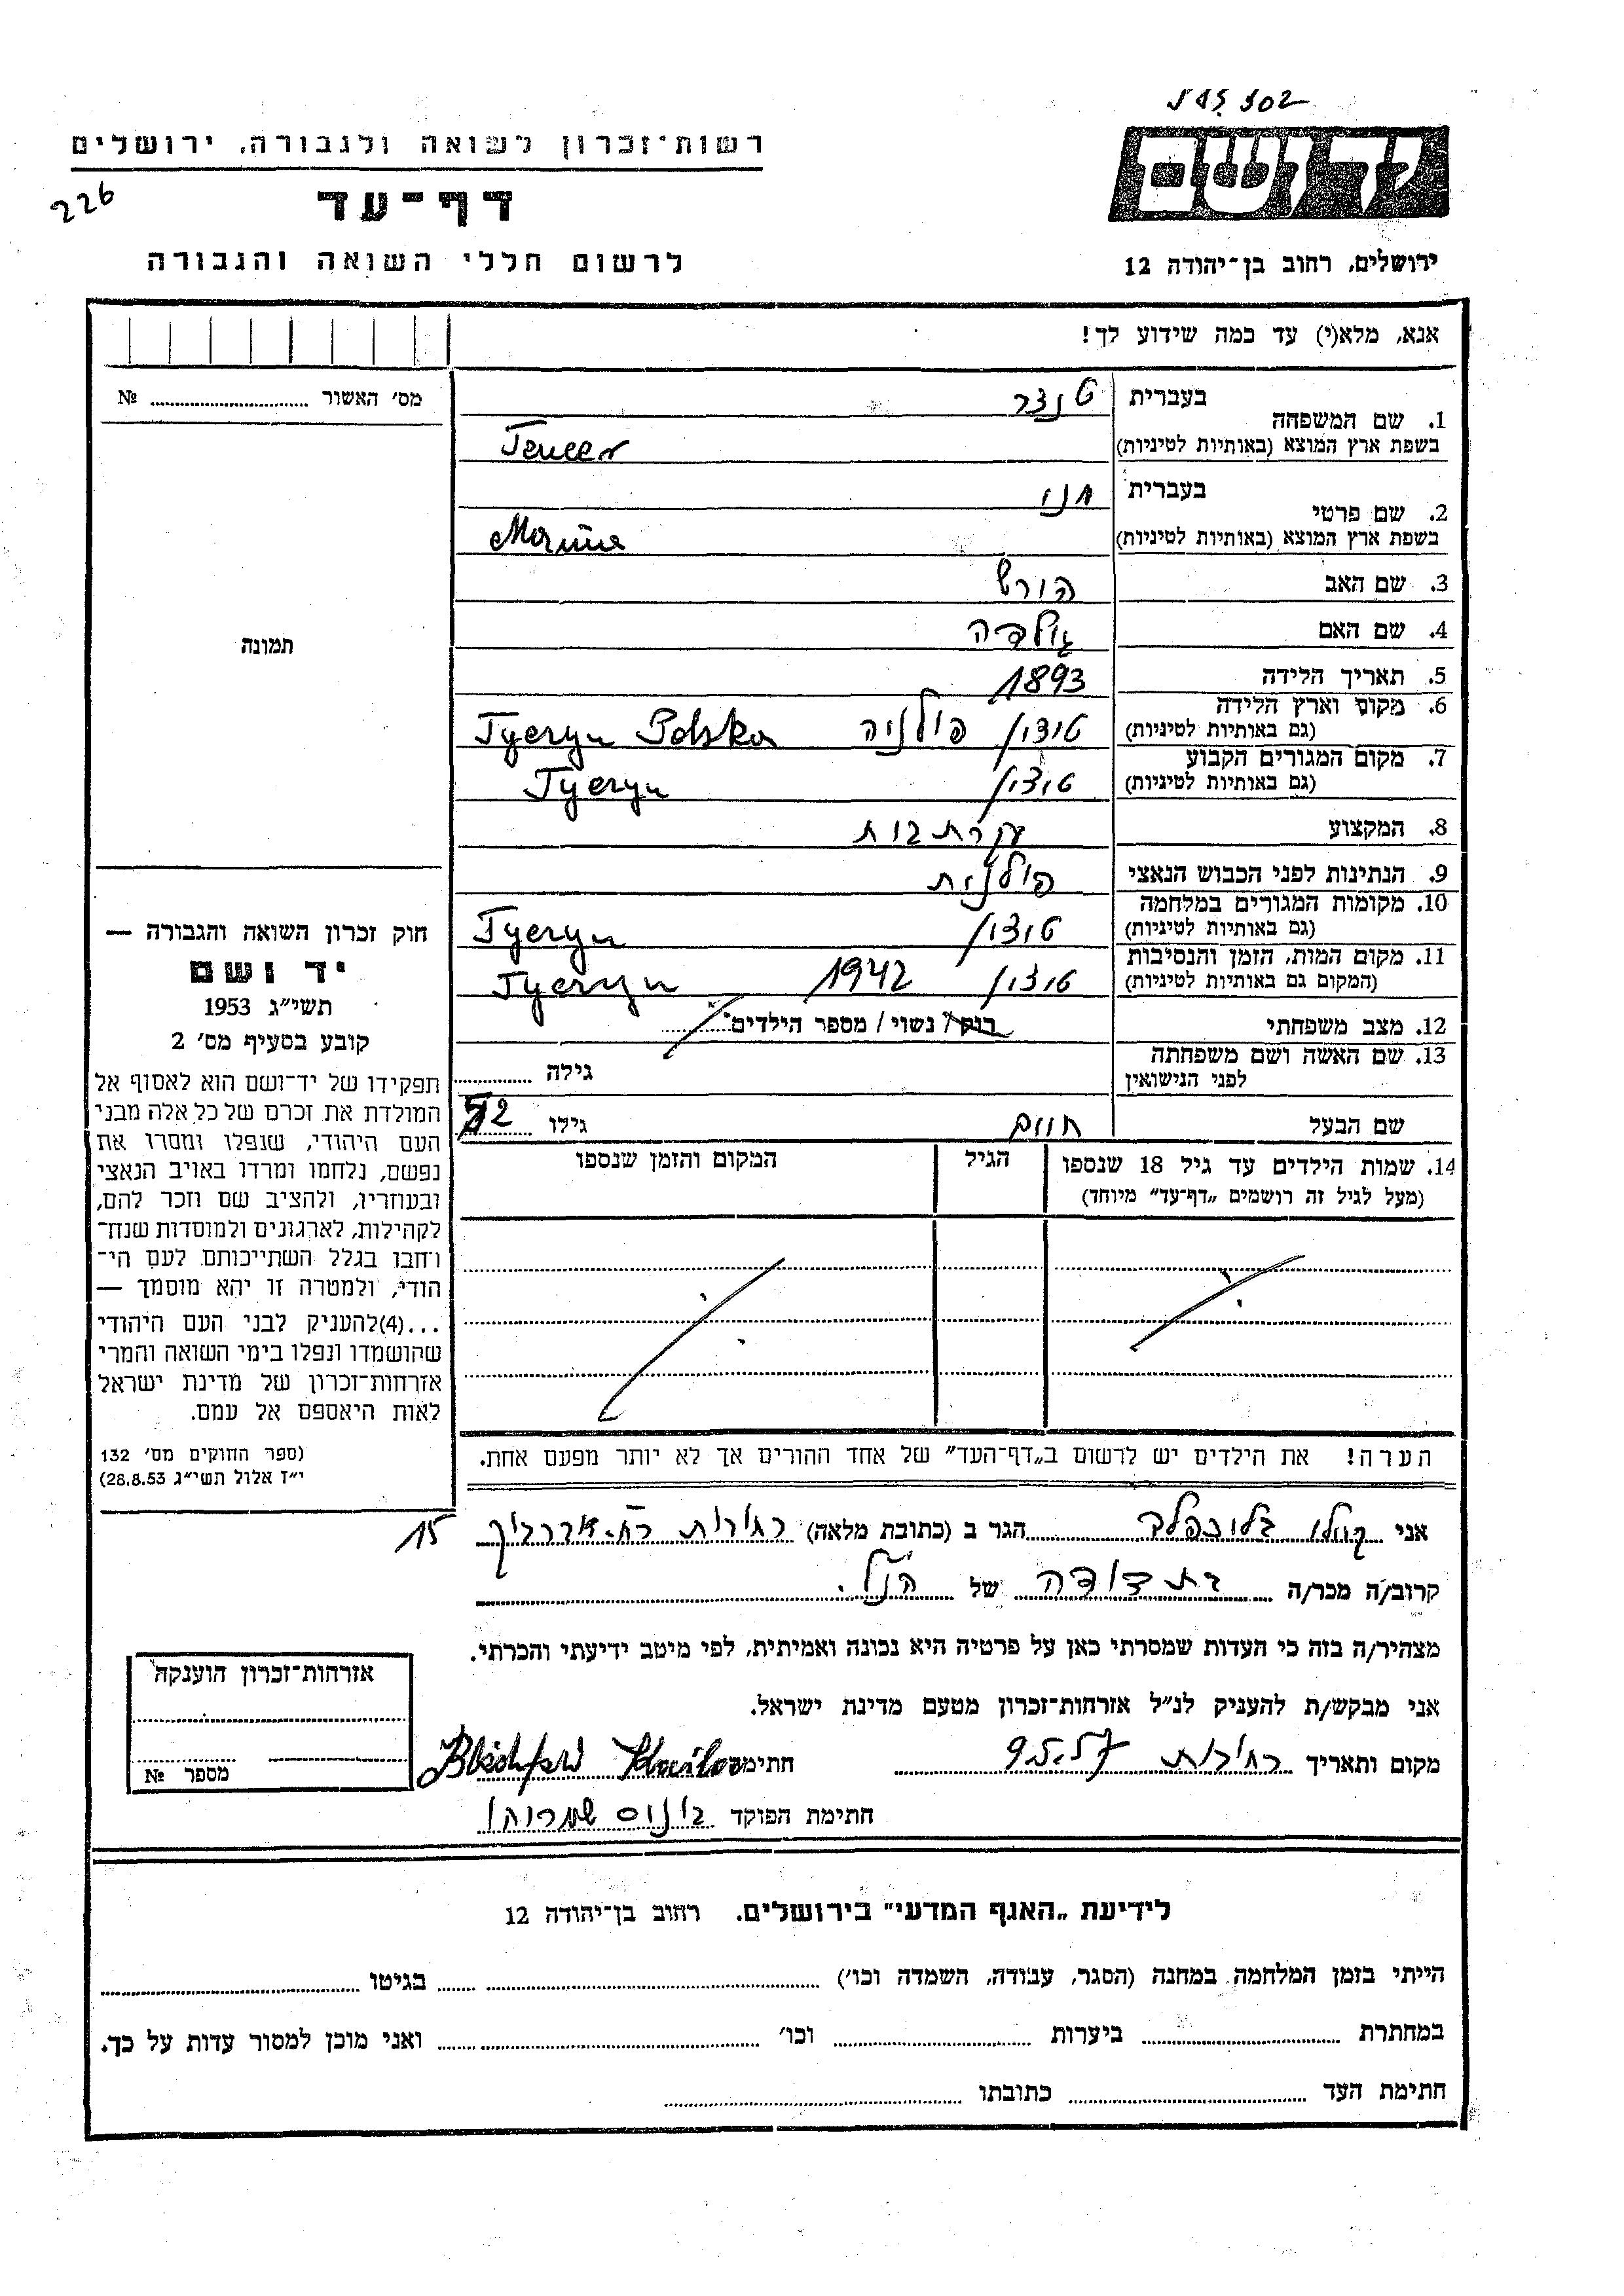 יד ושם
רשות־זכרון לשואה ולגבורה, ירושלים
226
דף־עד
לרשום חללי השואה והגבורה
ירושלים, רחוב בן־יהודה 12
אנא, מלא(י) עד כמה שידוע לך!
מס' האשור № 
1. שם המשפחה
בעברית טנצר
בשפת ארץ המוצא (באותיות לטיניות) Tencer
2. שם פרטי
בעברית חנו
בשפת ארץ המוצא (באותיות לטיניות)
3. שם האב הורש
4. שם האם גולדה
5. תאריך הלידה 1893
6. מקום וארץ הלידה
(גם באותיות לטיניות) פולניה Polska
7. מקום המגורים הקבוע
(גם באותיות לטיניות)
8. המקצוע עקרת בית
9. הנתינות לפני הכבוש הנאצי פולנית
10. מקומות המגורים במלחמה
(גם באותיות לטיניות)
11. מקום המות, הזמן והנסיבות
(המקום גם באותיות לטיניות) 1942
12. מצב משפחתי רוק / נשוי / מספר הילדים
13. שם האשה ושם משפחתה
לפני הנישואין גילה
שם הבעל חיים גילו 52
14. שמות הילדים עד גיל 18 שנספו הגיל המקום והזמן שנספו
(מעל לגיל זה רושמים „דף־עד” מיוחד)
הערה! את הילדים יש לרשום ב„דף־העד” של אחד ההורים אך לא יותר מפעם אחת.
תמונה
חוק זכרון השואה והגבורה —
יד ושם
תשי״ג 1953
קובע בסעיף מס' 2
תפקידו של יד־ושם הוא לאסוף אל
המולדת את זכרם של כל אלה מבני
העם היהודי, שנפלו ומסרו את
נפשם, נלחמו ומרדו באויב הנאצי
ובעוזריו, ולהציב שם וזכר להם,
לקהילות, לארגונים ולמוסדות שנח־
רחבו בגלל השתייכותם לעם הי־
הודי, ולמטרה זו יהא מוסמך —
...(4)להעניק לבני העם היהודי
שהושמדו ונפלו בימי השואה והמרי
אזרחות־זכרון של מדינת ישראל
לאות היאספם אל עמם.
(ספר החוקים מס' 132
י״ז אלול תשי״ג 28.8.53)
אני הגר ב (כתובת מלאה) רחובות 15
קרוב/ה מכר/ה בת דודה של הנ״ל.
מצהיר/ה בזה כי העדות שמסרתי כאן על פרטיה היא נכונה ואמיתית, לפי מיטב ידיעתי והכרתי.
אני מבקש/ת להעניק לנ״ל אזרחות־זכרון מטעם מדינת ישראל.
מקום ותאריך רחובות 9.5.57 חתימה
חתימת הפוקד
אזרחות־זכרון הוענקה
מספר №
לידיעת „האגף המדעי” בירושלים. רחוב בן־יהודה 12
הייתי בזמן המלחמה במחנה (הסגר, עבודה, השמדה וכו') בגיטו
במחתרת ביערות וכו' ואני מוכן למסור עדות על כך.
חתימת העד כתובתו